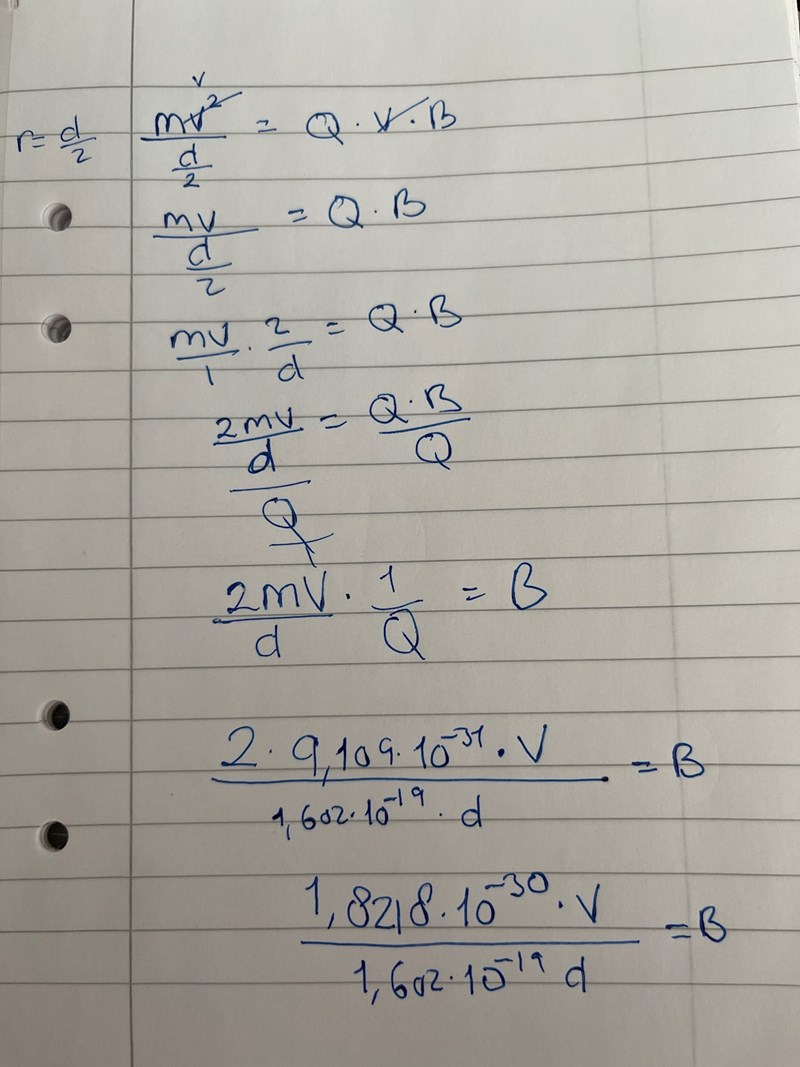 r = d/2   mv²/(d/2) = Q · v · B
v
mv/(d/2) = Q · B
mv/1 · 2/d = Q · B
(2mv/d)/Q = Q · B/Q
2mv/d · 1/Q = B
2 · 9,109 · 10⁻³¹ · v / 1,602 · 10⁻¹⁹ · d = B
1,8218 · 10⁻³⁰ · v / 1,602 · 10⁻¹⁹ d = B